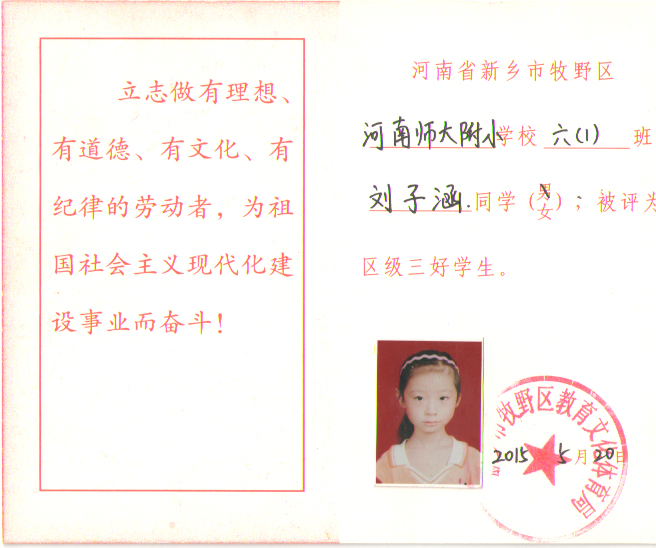 立志做有理想、
有道德、有文化、有
纪律的劳动者，为祖
国社会主义现代化建
设事业而奋斗！
河南省新乡市牧野区
河南师大附小学校 六(1) 班
刘子涵.同学（男女）；被评为
区级三好学生。
市牧野区教育文化体育局
2015年5月20日